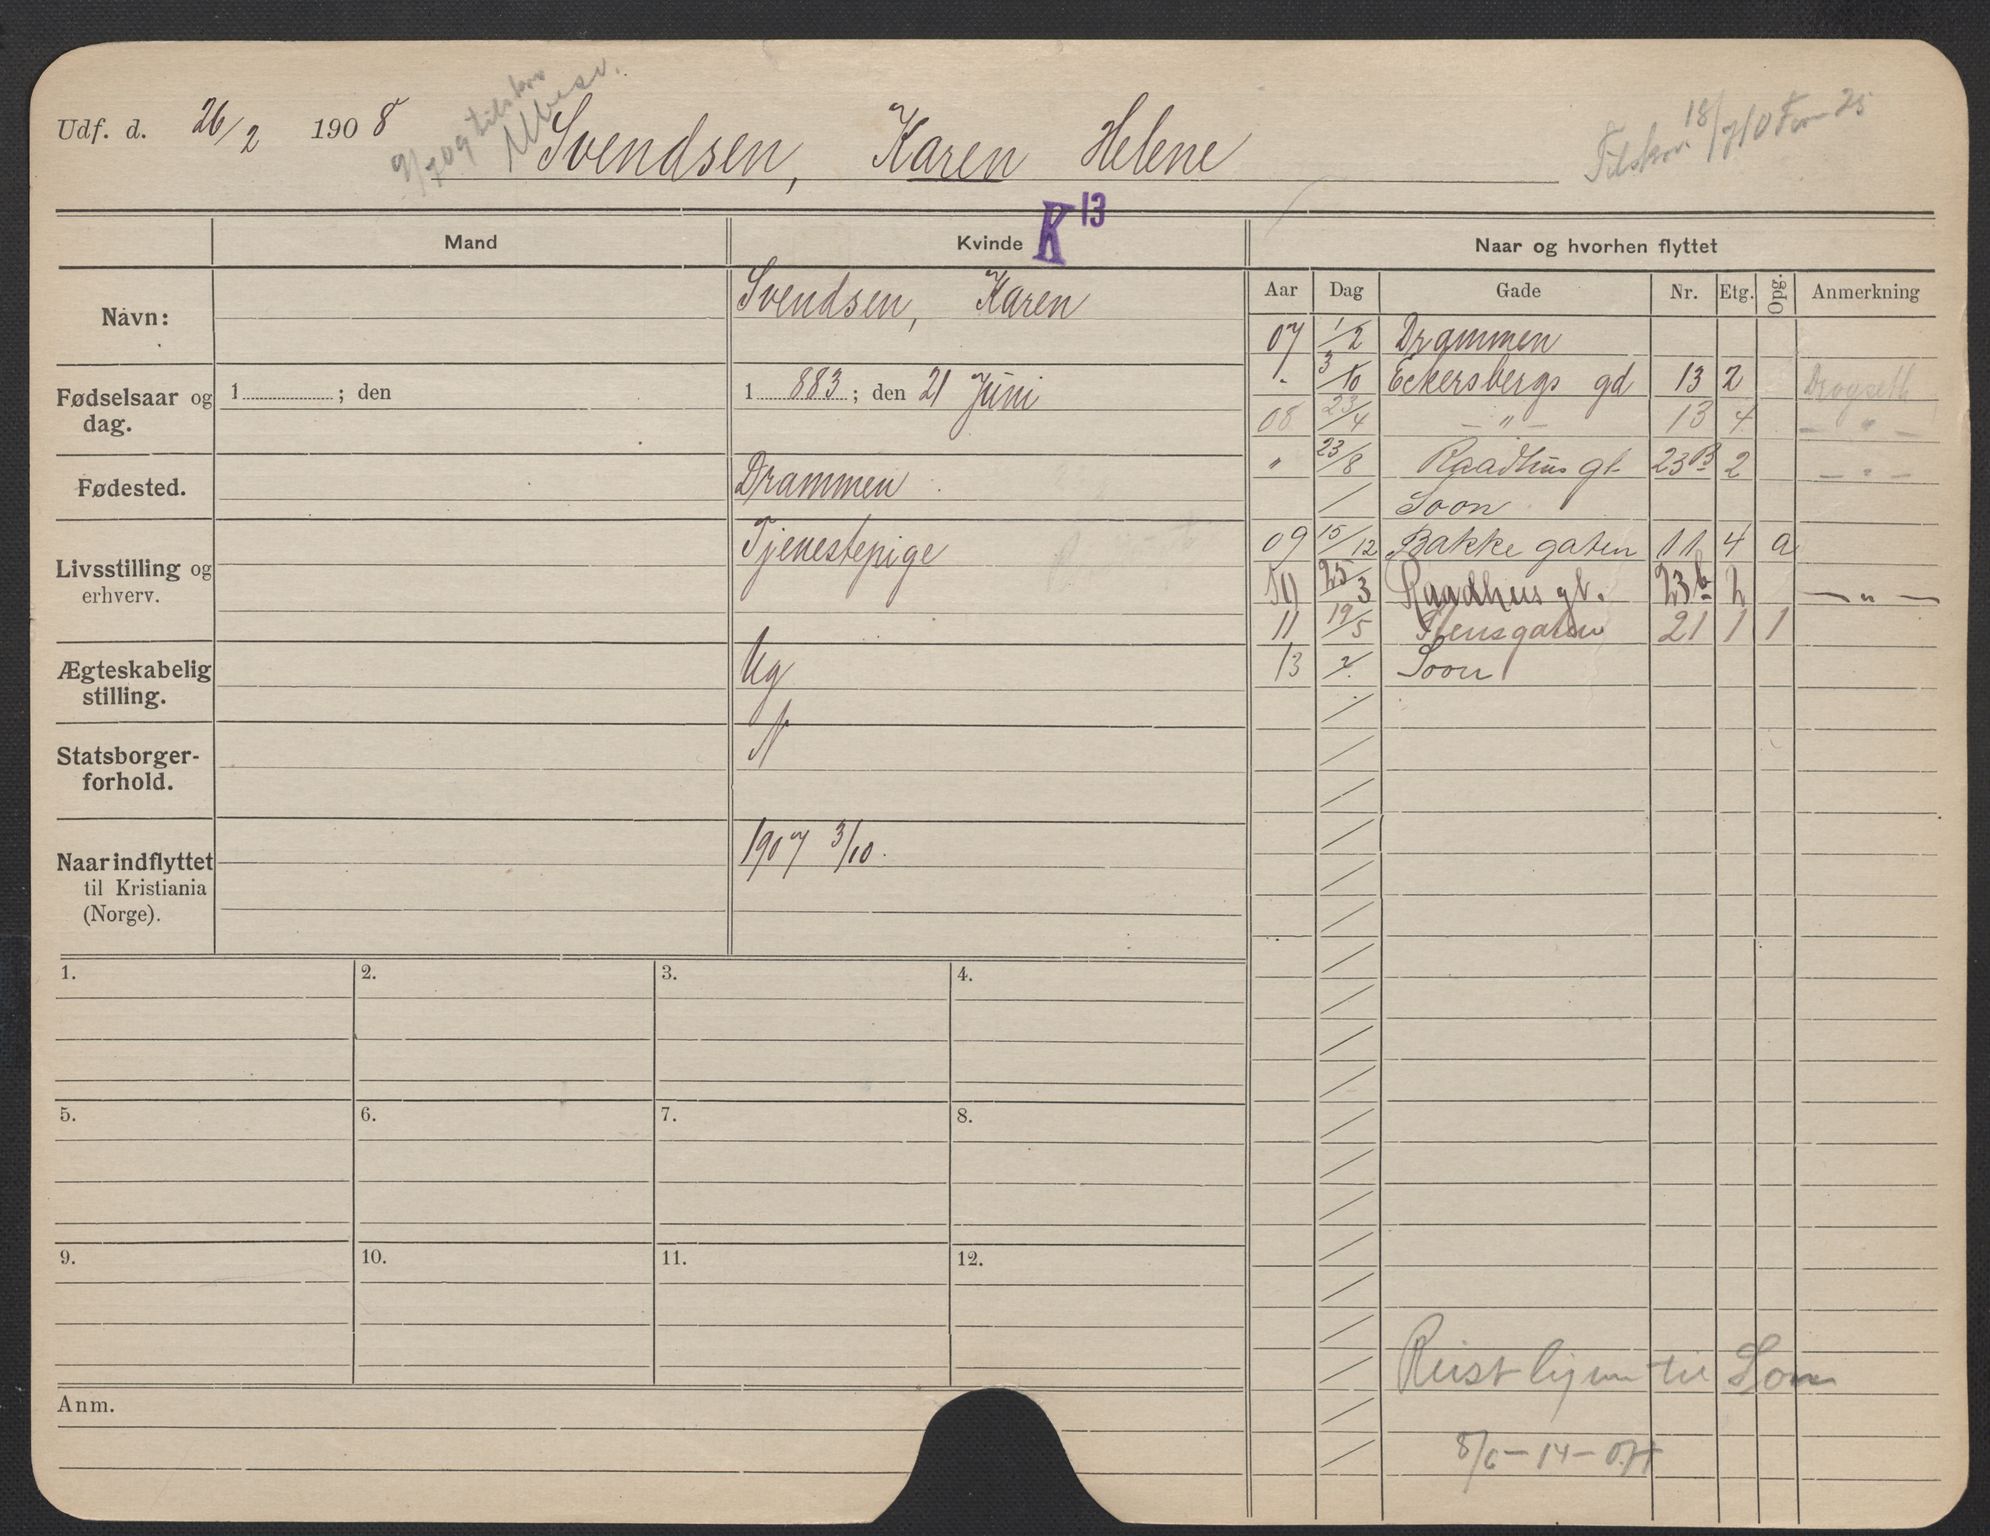 Udf. d. 26/2 1908 Svendsen, Karen Helene
9/7 09 tilskr. Ubesv.
Tilskr. 18/7 10
K 13
Mand Kvinde Naar og hvorhen flyttet
Aar Dag Gade Nr. Etg. Opg. Anmerkning
Navn: Svendsen, Karen
Fødselsaar og dag. 1 ; den 1 883 ; den 21 Juni
Fødested. Drammen
Livsstilling og erhverv. Tjenestepige
Ægteskabelig stilling. Ug
Statsborgerforhold. N
Naar indflyttet til Kristiania (Norge). 1907 3/10.
07 1/2 Drammen
" 3/10 Eckersbergs gd 13 2 Drogseth
08 23/4 — " — 13 4 — " —
" 23/8 Raadhus gt 23 B 2 — " —
/ Soon
09 15/12 Bakke gaten 11 4 a
10 25/3 Raadhus gt. 23 b 2 — " —
11 19/5 Stensgaten 21 1 1
13 ?/. Soon
1. 2. 3. 4.
5. 6. 7. 8.
9. 10. 11. 12.
Anm.
Reist hjem til Soon
8/6 – 14 –